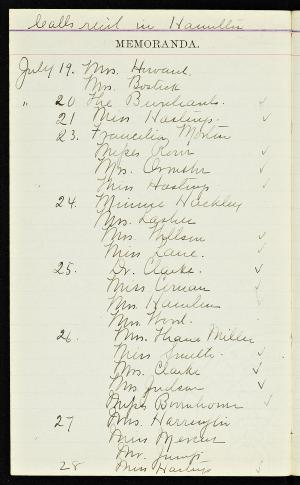 Calls rec'd in Hamilton
MEMORANDA.
July 19. Mrs. Howard.
Mrs. Bostick
" 20 The Burchards. ✓
21 Miss Hastings. ✓
23. Francelia
Misses ✓
Mrs. Ormsby ✓
Miss Hastings ✓
24. Minnie Hackley
Mrs.
Mrs. Willson ✓
Miss Lane. ✓
25. Dr. Clarke. ✓
Miss ✓
Mrs. Hamlin ✓
Mrs. Wood.
26. Mrs. Miller
Miss Smith. ✓
Mrs. Clarke ✓
Mrs Judson ✓
Misses ✓
27 Mrs. Harrington
Miss Mercer
Mr. Jump
28 Miss Hastings ✓